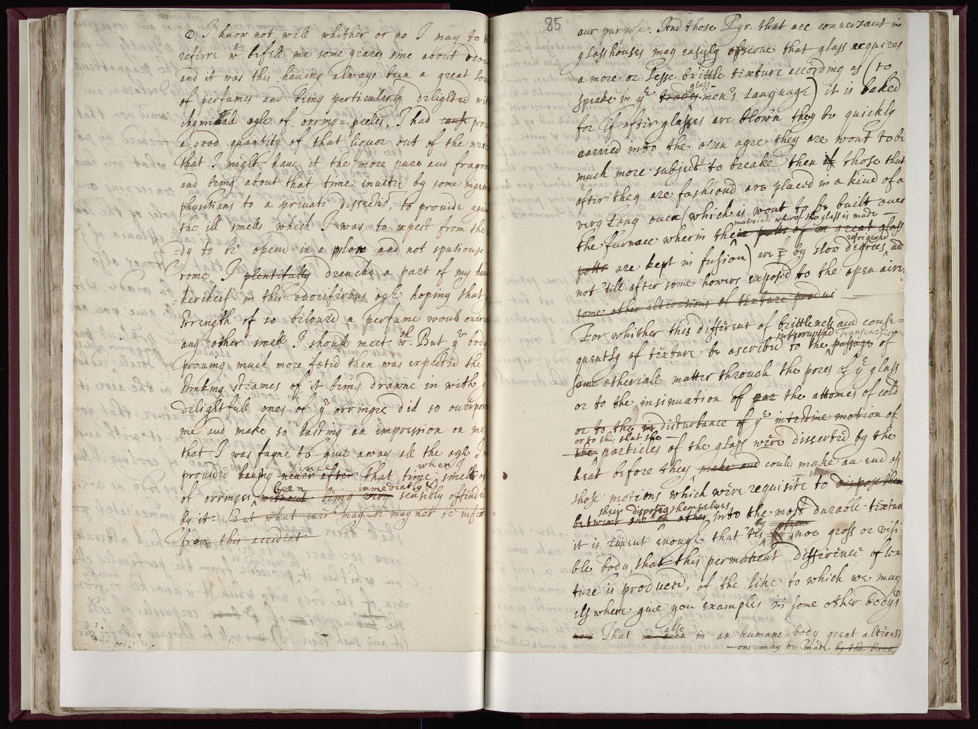 I know not well whither or no I may to
referre wt befell me some yeares since about
and it was this, having always been a great
of perfumes and being perticularly delighted
oyle of orring-peeles, I had
a good quantity of that liquor out of the
that I might have it the more pure and
and being about that time invited by some
physitians to a private dissection, to provide
the ill smels which I was to expect from the
-dy to be opend in a and not spatious
rome, I plentifully drencht a part of my
-kercheif in this odoriferous oyle hoping that
strength of so beloved a perfume would
any other smell I should meet wth. But ye
proving much more fœtid then was expected the
stinking steames of it being drawne in with
delightfull ones of ye orringe did so
me and make so lasting an impression on me
that I was faine to give away all the oyle I
provided having never after that time when I smelt
of orringes without being been immediately sensibly offended
by it. But what may or may not be
from this accident
85
our purpose. And those Pyr. that are conversant in
glasshouses may easyly observe that glass acquires
a more or lesse brittle texture according as (to
speake in ye glass-men's Language) it is baked
for if after glasses are blown they be quickly
carried into the open ayre they are wont to be
much more subject to breake then those that
after they are fashiond are placed in a kind of a
very Long oven (which is wont to be built over
materials whereof the glass is made
the furnace wherin the pots of in great glass
potts are kept in fusion) and by slow degrees refrigerated and
not till after some howers exposed to the open aire.
some other alterations of texture
For whither this different of brittleness and conse-
interrupted transcursion
quently of texture be ascribed to the passage of
some ætheriall matter through the pores of ye glass
or to the insinuation of the attomes of cold
or to the disturbance of ye intestine motion of
or to this, that the
the particles of the glass were deserted by the
heat before they make could make an end of
those motions which were requisite to
they disposing themselves
betwixt one another into the most durable texture
it is evident enough that by noe gross or visi
ble body, that this permanent difference of tex
ture is produced, of the like to which we may
elswhere give you examples in some other bodys
That also in an humane body great alterati
-ons may be made by the bare